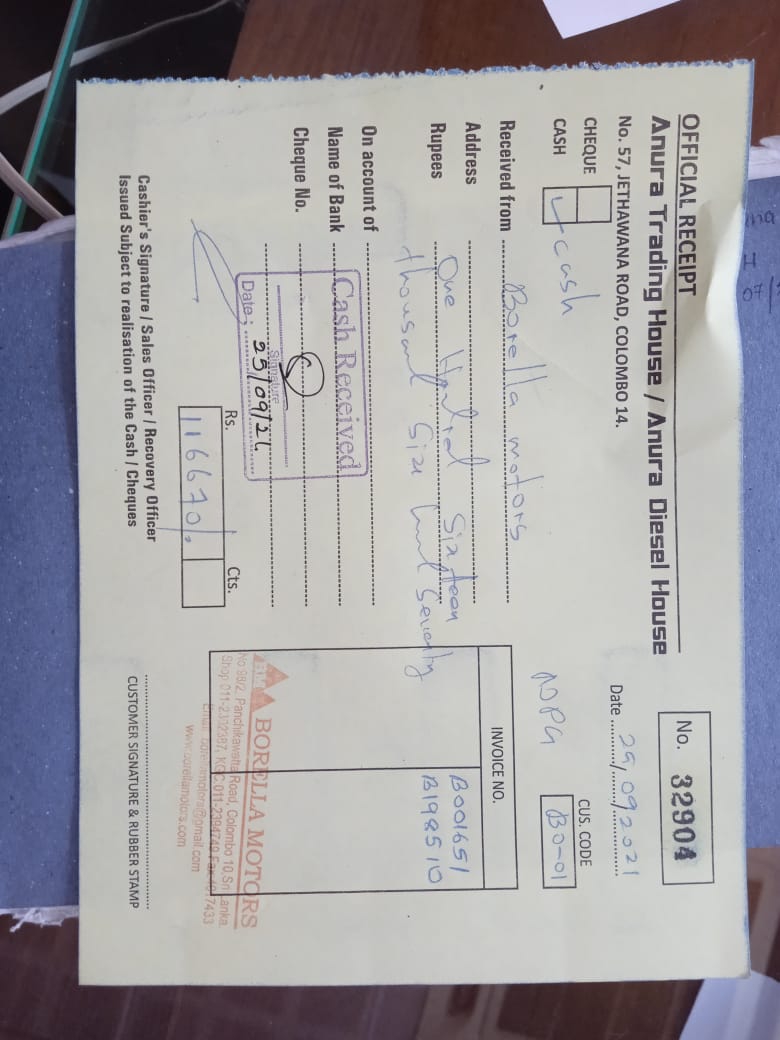 OFFICIAL RECEIPT
Anura Trading House / Anura Diesel House
No. 57, JETHAWANA ROAD, COLOMBO 14.
No. 32904
Date 29/092021
CHEQUE
CASH
cash
NPG
CUS. CODE
B0-01
Received from Borella motors
Address
Rupees One Hundred Sixteen
thousand Six hund Seventy
INVOICE NO.
B001651
B198510
On account of
Name of Bank
Cheque No.
Cash Received
Signature
Date : 25/09/2
Rs.
Cts.
116670/.
BORELLA MOTORS
No 98/2, Panchikawatta Road, Colombo 10, Sri Lanka.
Shop 011-2332387, KGC 011-2394749 Fax 7433
Email: borellamotors@gmail.com
www.borellamotors.com
Cashier's Signature / Sales Officer / Recovery Officer
Issued Subject to realisation of the Cash / Cheques
CUSTOMER SIGNATURE & RUBBER STAMP
07/